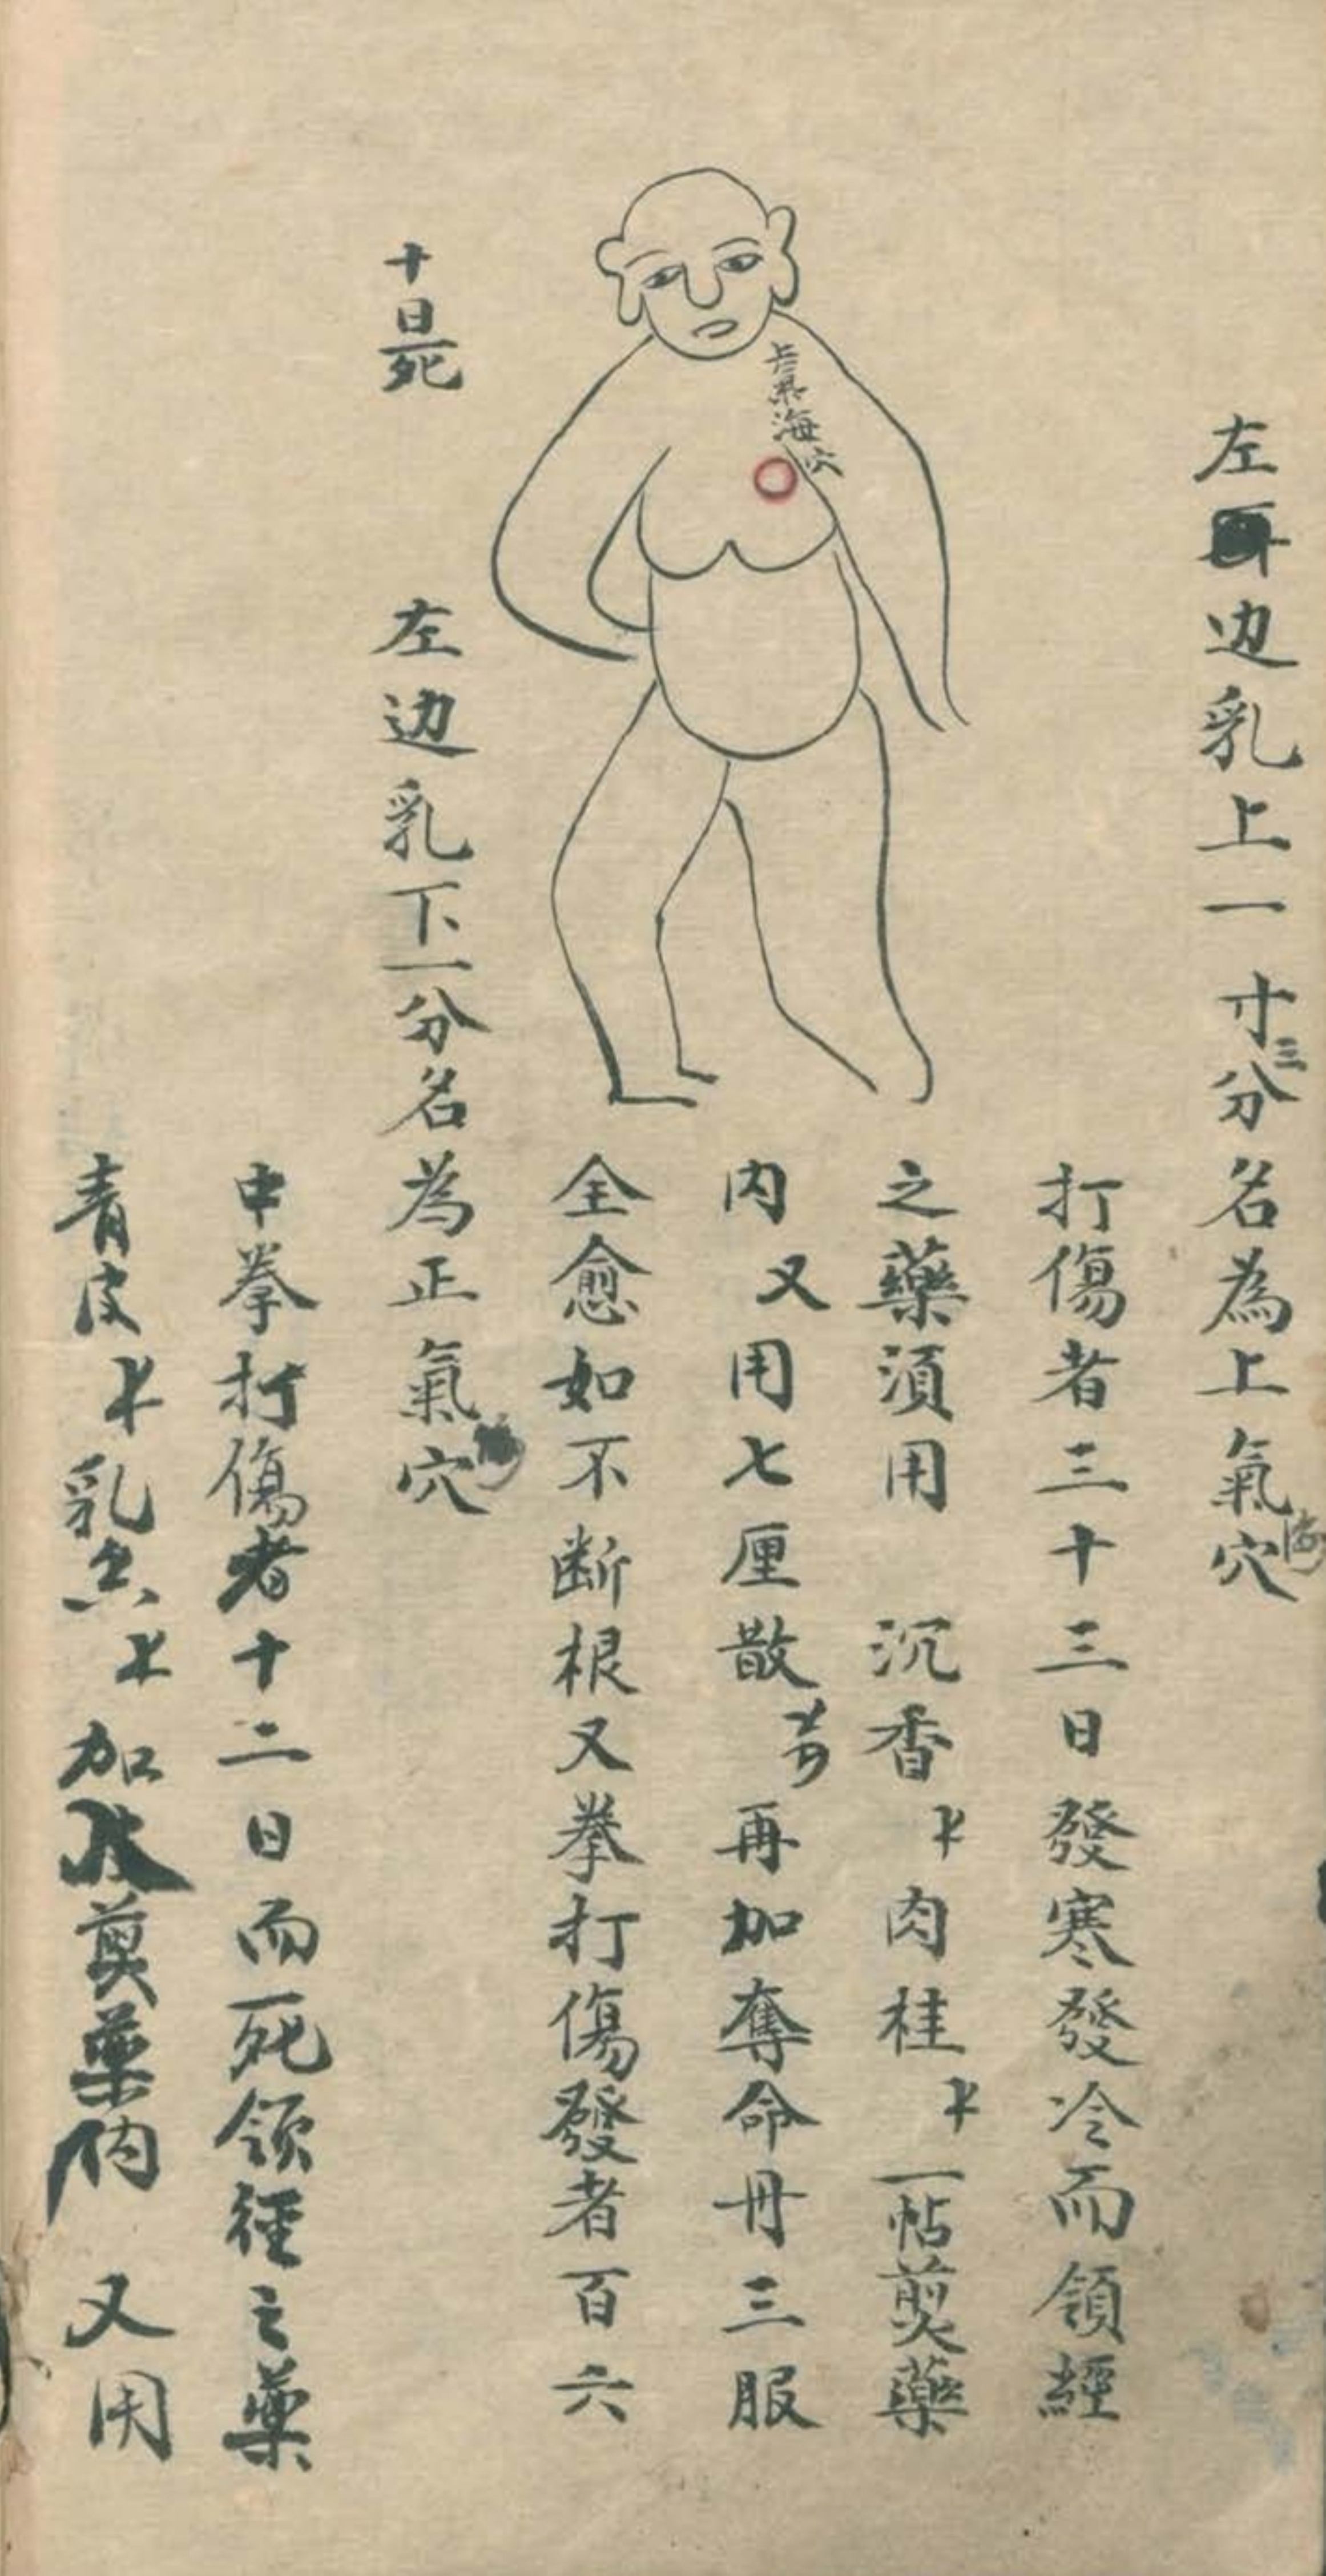 左边乳上一寸三分名為上氣海穴
打傷者三十三日發寒發冷而領經
之藥須用 沉香 肉桂 一帖煎藥
内又用七厘散 再加奪命丹三服
上氣海穴
全愈如不断根又拳打傷發者百六
十日死
左边乳下一分名為正氣穴
中拳打傷者十二日而死领徑之藥
青皮 乳香 加 煎藥内 又用